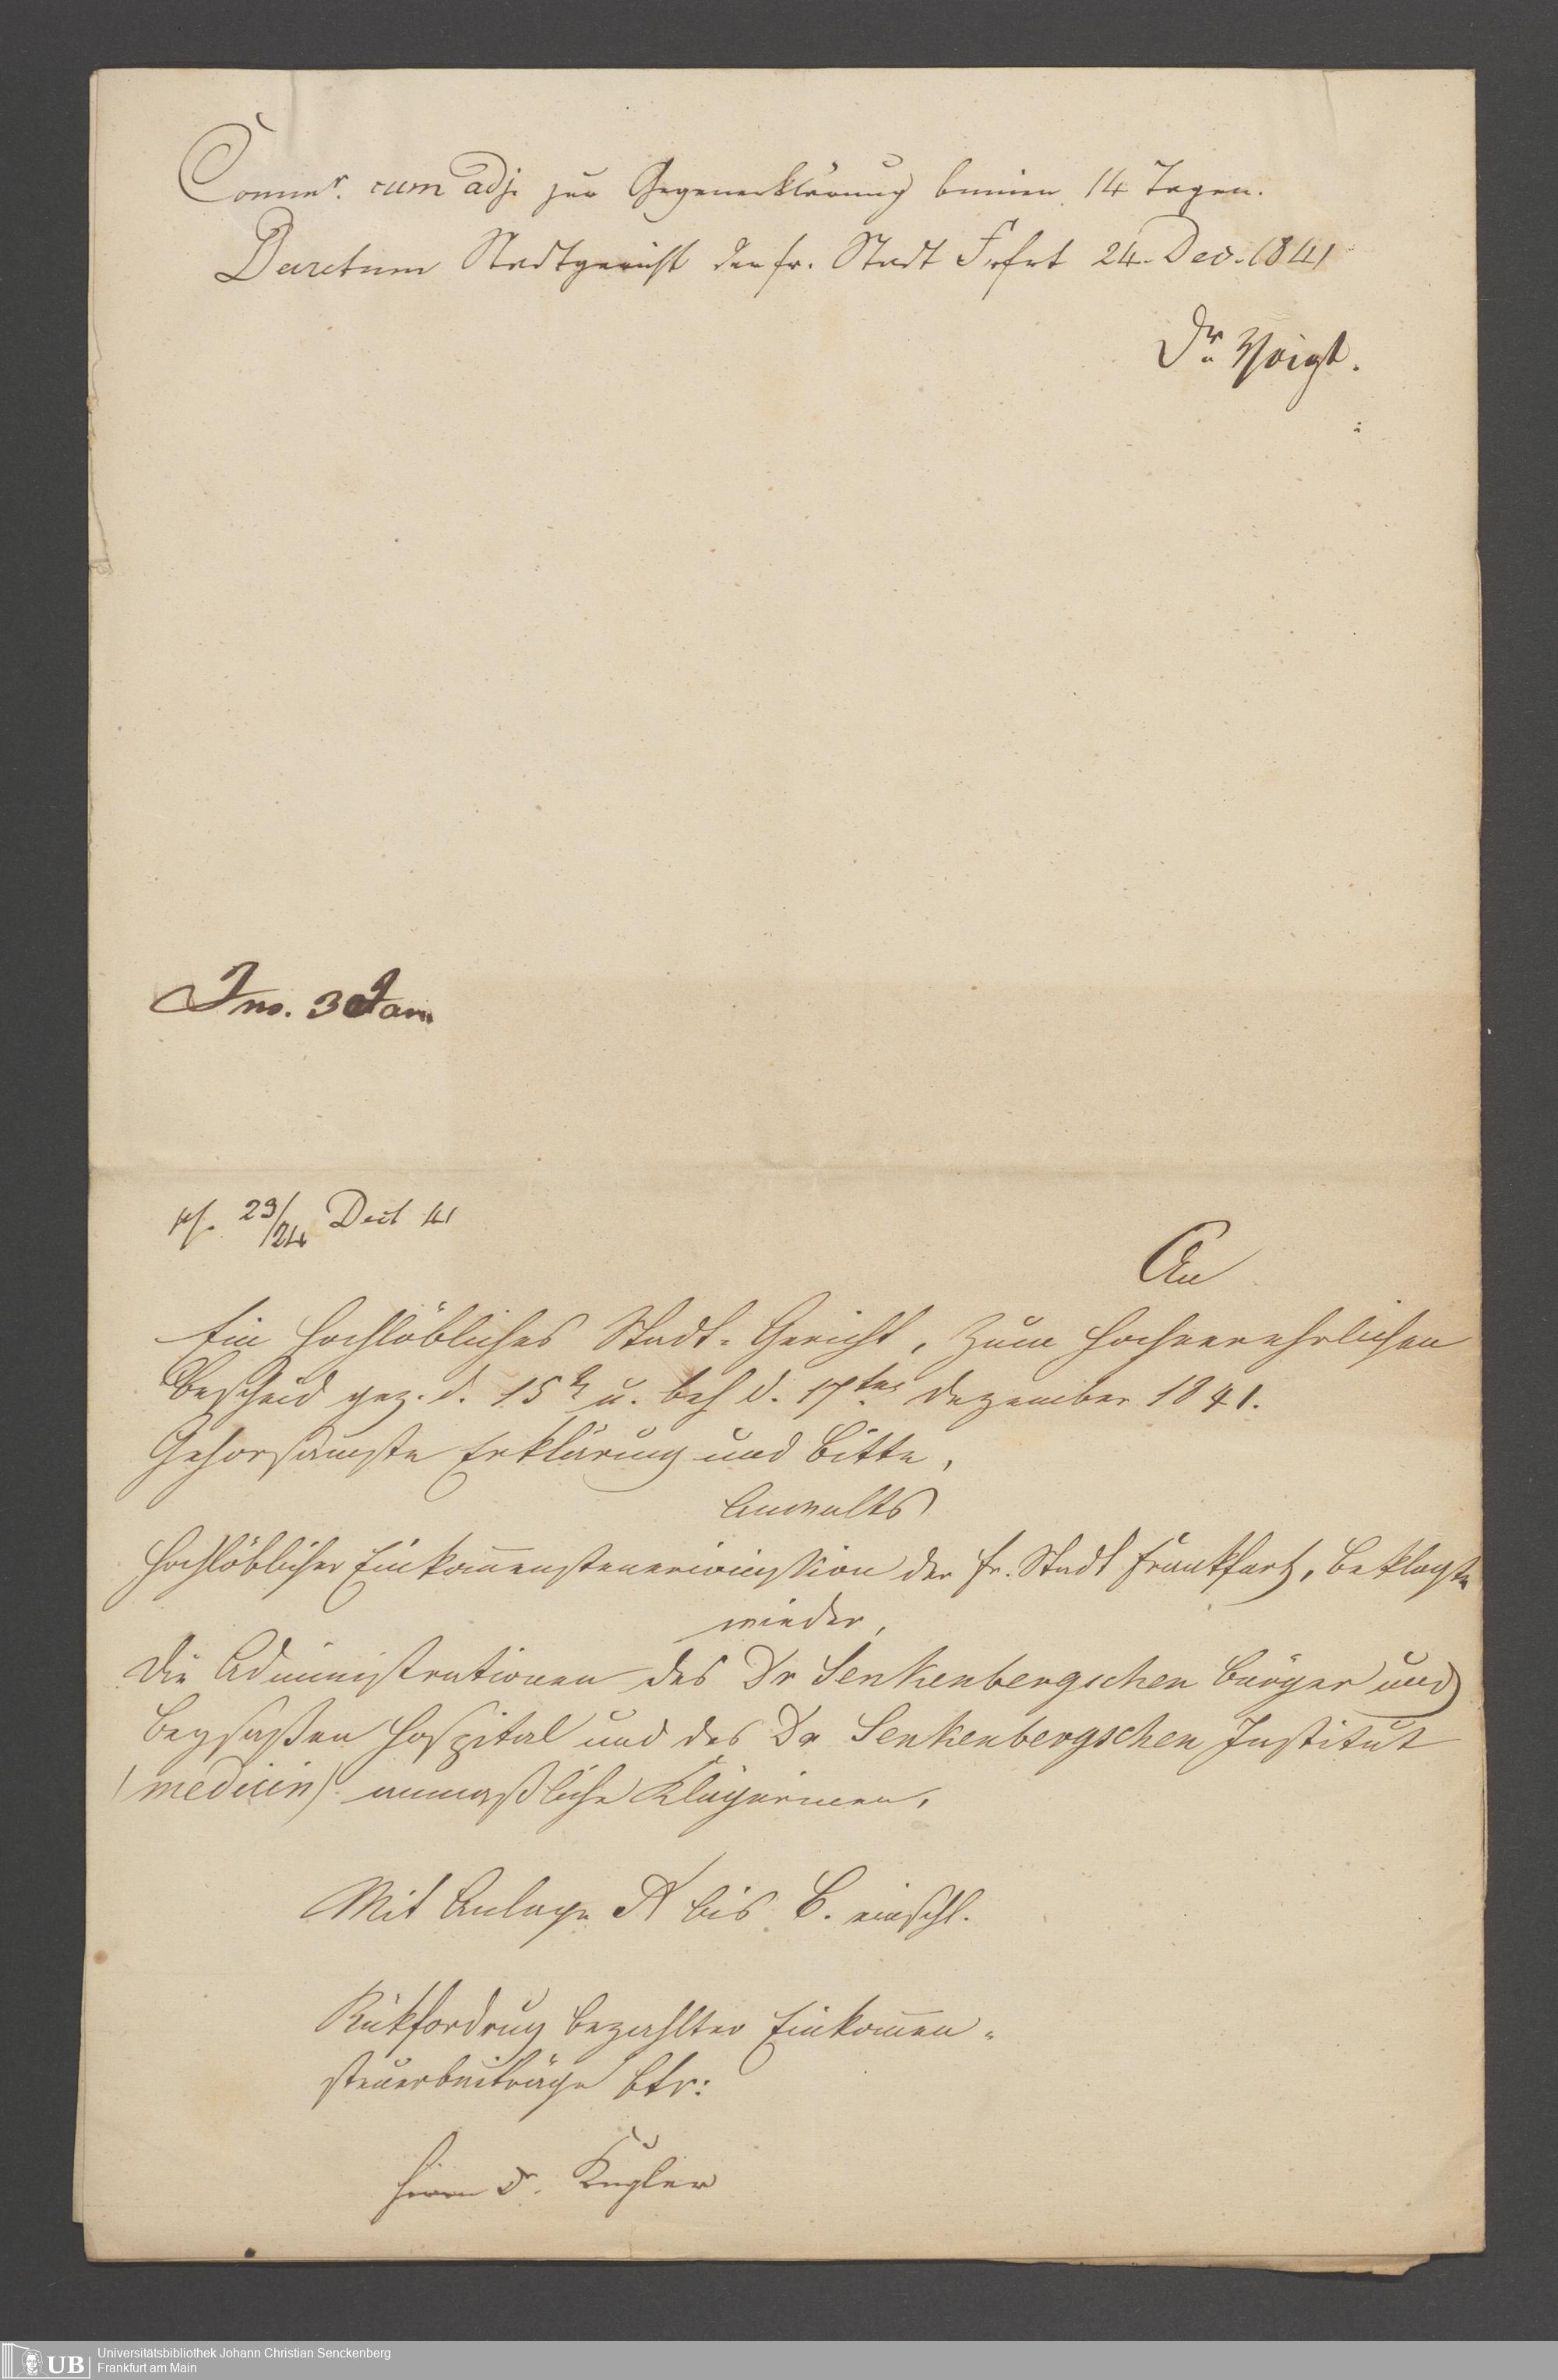 Commr. cum adj. zur Gegenerklärung binnen 14 Tagen.
Decretum Stadtgericht der fr. Stadt Frfrt 24. Dec. 1841
Dr. Voigt.
Ins. 3 Jan
ps. 23/24 Dect 41
An
Ein Hochlöbliches Stadt-Gericht, zum hochverehrlichen
Bescheid gez. d. 15t u. beh d. 17ten Dezember 1841.
Gehorsamste Erklärung und Bitte,
Anwalts
Hochlöblicher Einkom̅ensteuer der fr. Stadt Frankfurt, Beklagte
wieder,
die Administrationen des Dr Senkenbergschen Bürger und
Beysaßen Hospital und des Dr Senkenbergschen Institut
(medicin) anmaßliche Klägerinnen,
Mit Anlage A bis C. einschl.
Rückfordrung bezahlter Einkom̅en-
steuerbeiträge btr:
Herrn Dr. Kugler
UB
Universitätsbibliothek Johann Christian Senckenberg
Frankfurt am Main